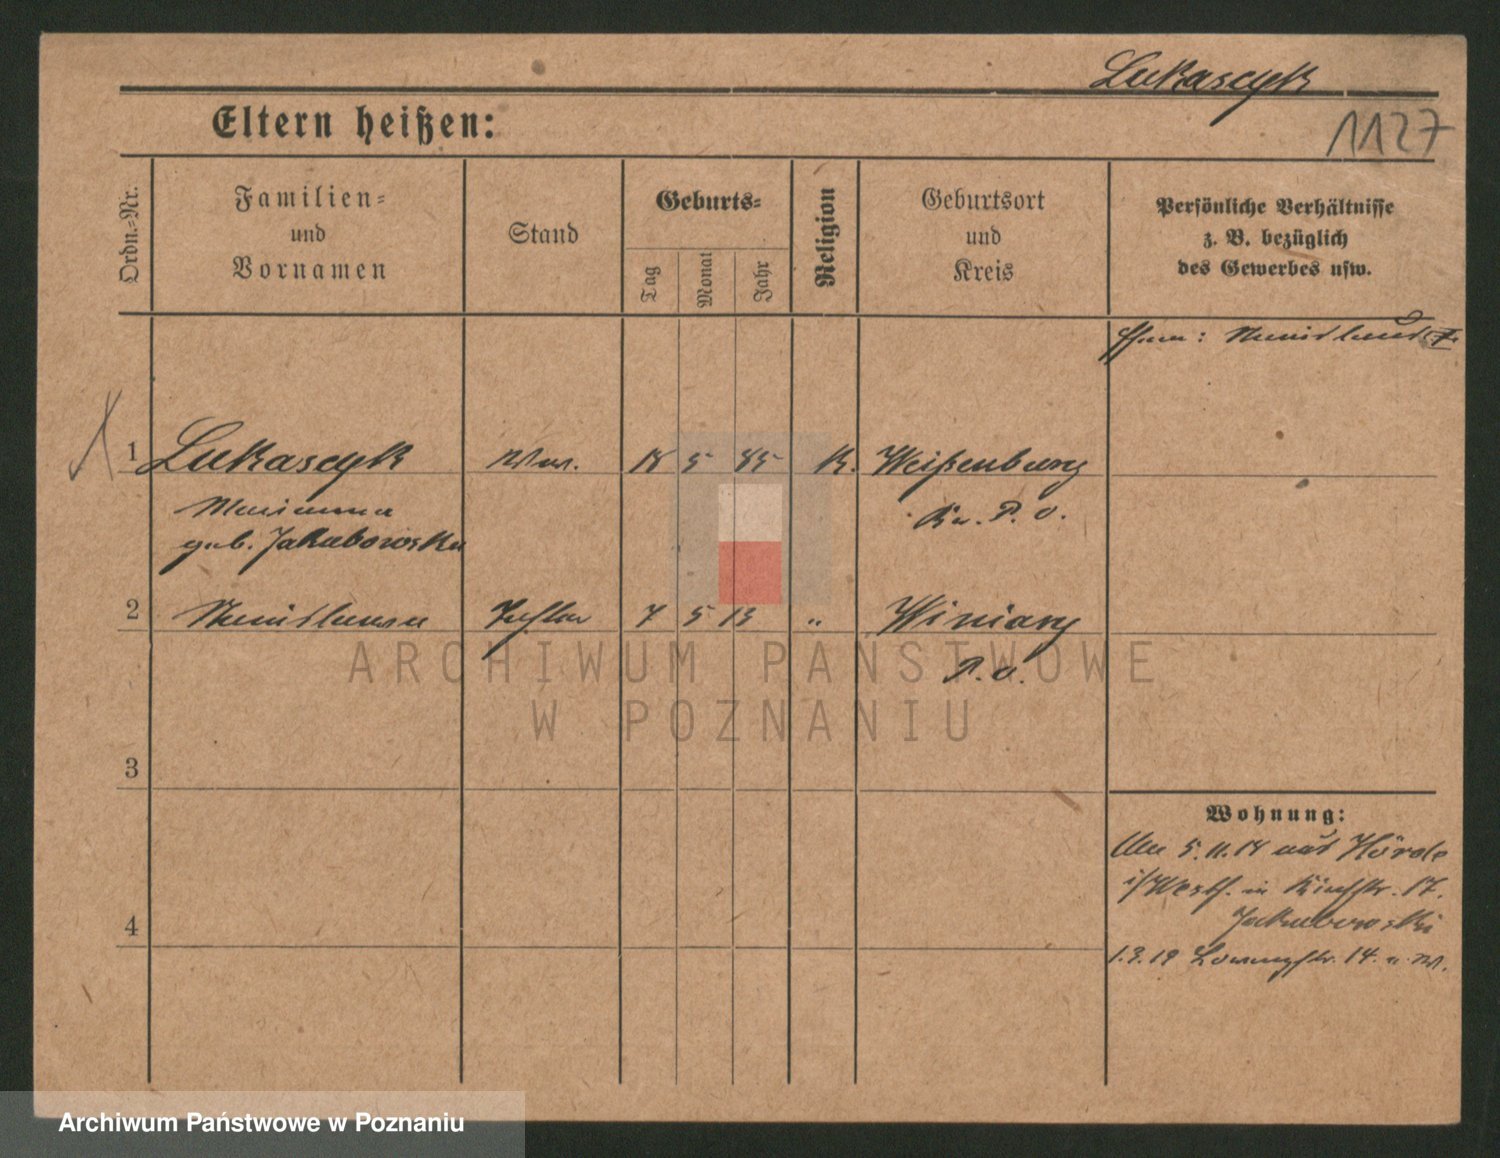 Lukascyk
1127
Eltern heißen:
Ordn.-Nr.
Familien-
und
Vornamen
Stand
Geburts-
Tag
Monat
Jahr
Religion
Geburtsort
und
Kreis
Persönliche Verhältnisse
z. B. bezüglich
des Gewerbes usw.
Ehem: Stanislaus
1 Lukascyk Ww. 18 5 85 K. Weißenburg
Marianna
geb. Jakubowska
Kr. P. O.
2 Stanislawa Tochter 7 5 13 " Winiary
P. O.
3
4
Wohnung:
5. 11. 18 aus Hörde
i/Westf. in 17.
Jakubowski
1. 3. 19 14.
ARCHIWUM PAŃSTWOWE
W POZNANIU
Archiwum Państwowe w Poznaniu